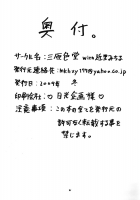 奥付。
サークル名：三色色堂
発行元連絡先：
@yahoo.co.jp
発行日：2009年 冬
印刷会社：日光企画様
注意事項：この本の全てを発行元の
許可なく転載する事を
禁じます。